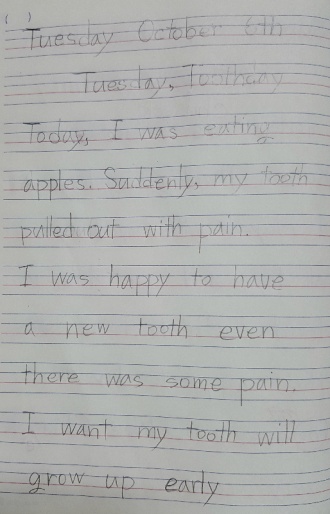 ( )
Tuesday October 6th
Tuesday, Toothday
Today, I was eating
apples. Suddenly, my tooth
pulled out with pain.
I was happy to have
a new tooth even
there was some pain.
I want my tooth will
grow up early